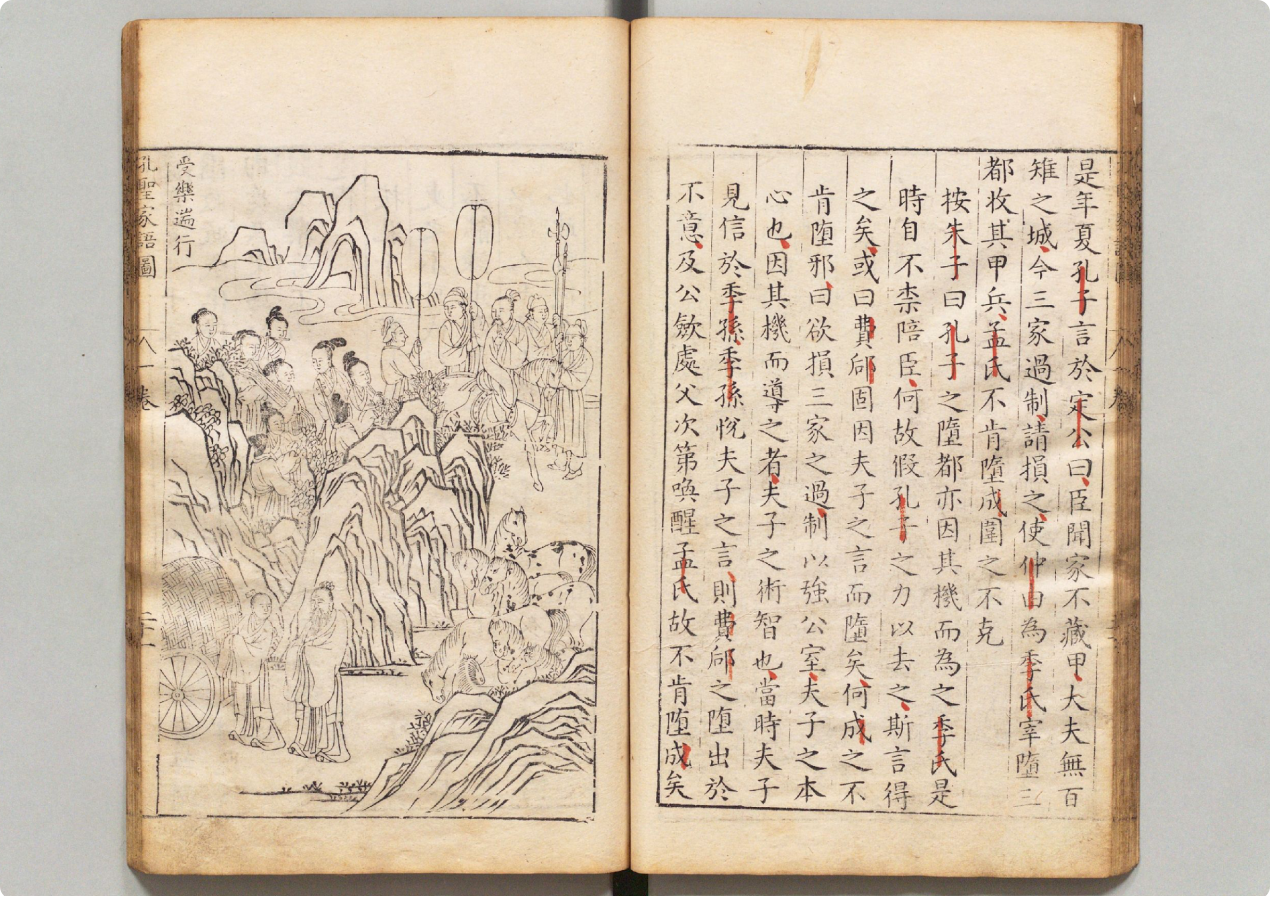 是年夏孔子言於定公曰臣聞家不藏甲大夫無百
雉之城今三家過制請損之使仲由為季氏宰墮三
都收其甲兵孟氏不肯墮成圍之不克
按朱子曰孔子之墮都亦因其機而為之季氏是
時自不柰陪臣何故假孔子之力以去之斯言得
之矣或曰費郈固因夫子之言而墮矣何成之不
肯墮邪曰欲損三家之過制以強公室夫子之本
心也因其機而導之者夫子之術智也當時夫子
見信於季孫季孫悅夫子之言則費郈之墮出於
不意及公歛處父次第喚醒孟氏故不肯墮成矣
受樂遄行
孔聖家語圖
八一卷